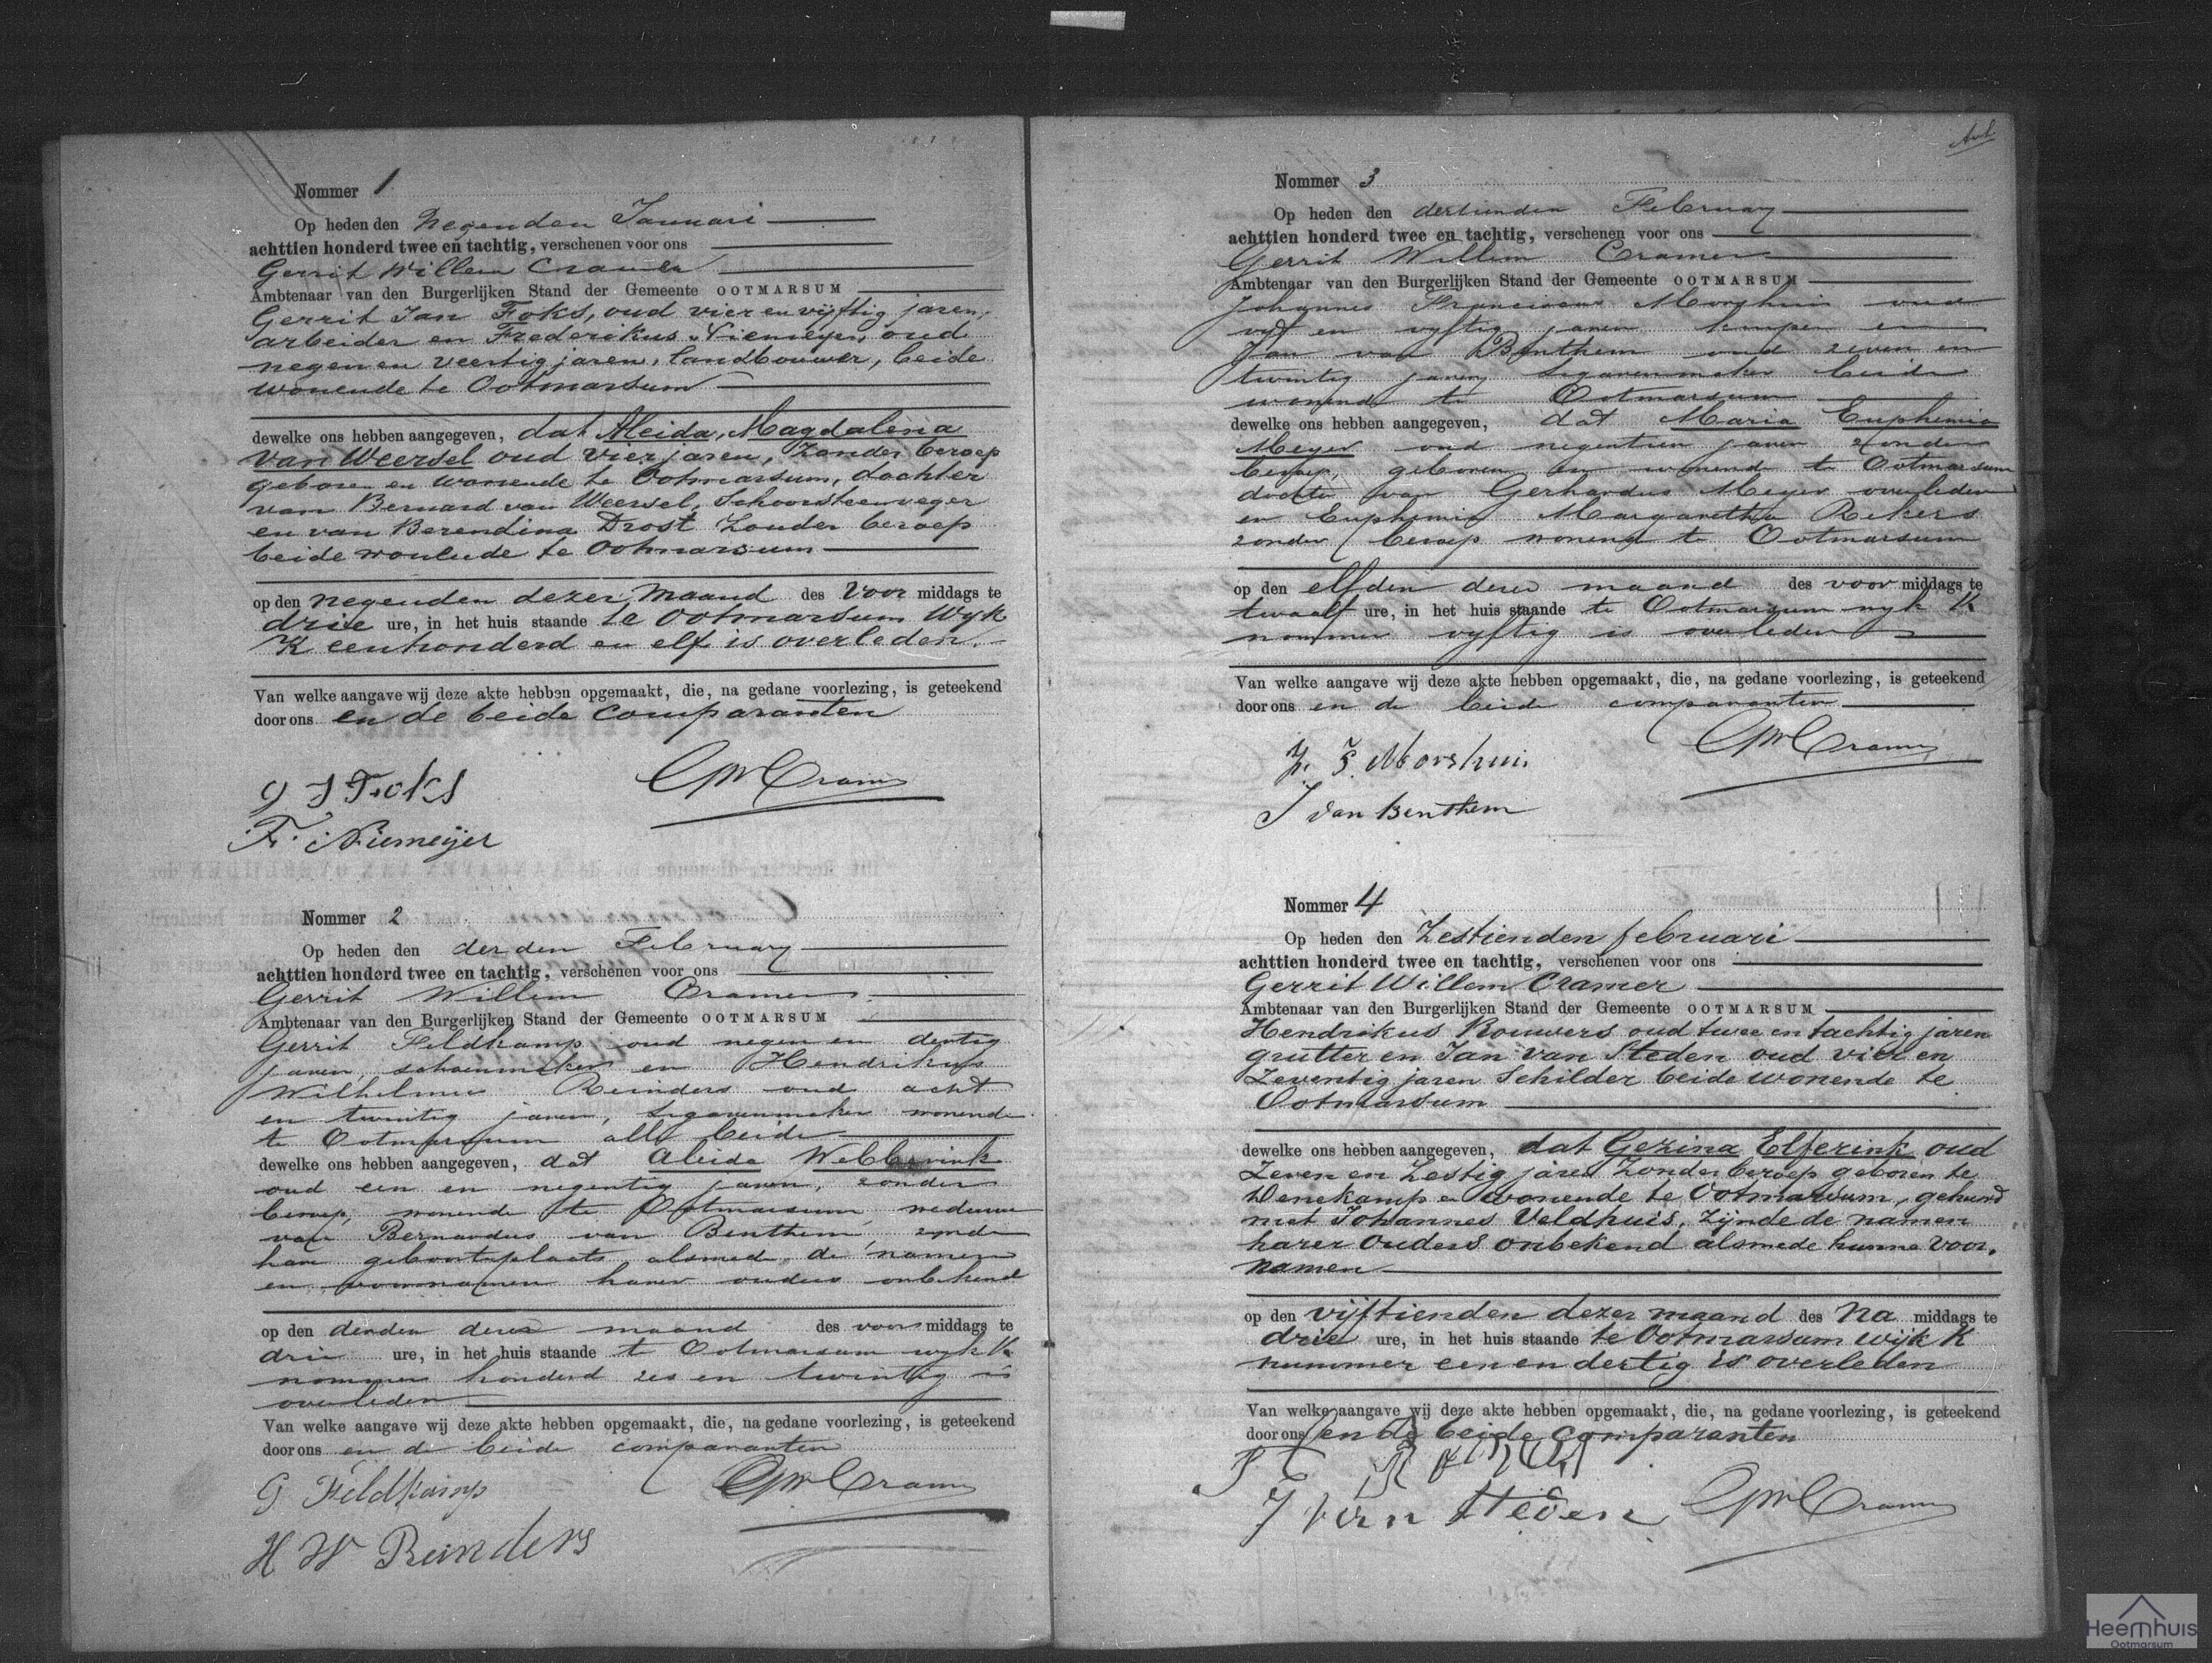 Nommer 1
Op heden den Negenden Januari
achttien honderd twee en tachtig, verschenen voor ons
Gerrit Willem Cramer
Ambtenaar van den Burgerlijken Stand der Gemeente OOTMARSUM
Gerrit Jan Foks, oud vier en vijftig jaren,
arbeider en Frederikus Niemeyer, oud
negen en veertig jaren, landbouwer, beide
wonende te Ootmarsum
dewelke ons hebben aangegeven, dat Aleida, Magdalena
van Weersel oud vier jaren, zonder beroep
geboren en wonende te Ootmarsum, dochter
van Bernard van Weersel, Schoorsteenveger
en van Berendina Drost zonder beroep
beide wonende te Ootmarsum
op den negenden dezer maand des voor middags te
drie ure, in het huis staande te Ootmarsum Wyk
K eenhonderd en elf is overleden.
Van welke aangave wij deze akte hebben opgemaakt, die, na gedane voorlezing, is geteekend
door ons en de beide comparanten
G J Foks
GWCramer
F. Niemeijer
Nommer 2
Op heden den derden February
achttien honderd twee en tachtig, verschenen voor ons
Gerrit Willem Cramer
Ambtenaar van den Burgerlijken Stand der Gemeente OOTMARSUM
Gerrit Feldkamp oud negen en dertig
jaren, schoenmaker en Hendrikus
Wilhelmus Reinders oud acht
en twintig jaren, sigarenmaker wonende
te Ootmarsum alle beide
dewelke ons hebben aangegeven, dat Aleida Webberink
oud een en negentig jaren, zonder
beroep, wonende te Ootmarsum, weduwe
van Bernardus van Benthem, zynde
hare geboorteplaats alsmede de namen
en voornamen harer ouders onbekend
op den derden dezer maand des voor middags te
drie ure, in het huis staande te Ootmarsum wyk K
nommer honderd zes en twintig is
overleden
Van welke aangave wij deze akte hebben opgemaakt, die, na gedane voorlezing, is geteekend
door ons en de beide comparanten
G Feldkamp
GWCramer
H W Reinders
Nommer 3
Op heden den dertienden February
achttien honderd twee en tachtig, verschenen voor ons
Gerrit Willem Cramer
Ambtenaar van den Burgerlijken Stand der Gemeente OOTMARSUM
Johannes Franciscus Morshuis oud
vyf en vyftig jaren kuiper en
Jan van Benthem oud zeven en
twintig jaren sigarenmaker beide
wonende te Ootmarsum
dewelke ons hebben aangegeven, dat Maria Euphemia
Meyer oud negentien jaren zonder
beroep, geboren en wonende te Ootmarsum
dochter van Gerhardus Meyer overleden
en Euphemia Margaretha Rekers
zonder beroep wonende te Ootmarsum
op den elfden dezer maand des voor middags te
twaalf ure, in het huis staande te Ootmarsum wyk K
nommer vyftig is overleden
Van welke aangave wij deze akte hebben opgemaakt, die, na gedane voorlezing, is geteekend
door ons en de beide comparanten
F. Morshuis
GWCramer
J van Benthem
Nommer 4
Op heden den Zestienden februari
achttien honderd twee en tachtig, verschenen voor ons
Gerrit Willem Cramer
Ambtenaar van den Burgerlijken Stand der Gemeente OOTMARSUM
Hendrikus Rouwers oud twee en tachtig jaren
grutter en Jan van Steden oud vier en
Zeventig jaren Schilder beide wonende te
Ootmarsum
dewelke ons hebben aangegeven, dat Gezina Elferink oud
Zeven en Zestig jaren Zonder beroep geboren te
Denekamp en wonende te Ootmarsum, gehuwd
met Johannes Veldhuis, Zijnde de namen
harer ouders onbekend alsmede hunne voor
namen
op den vijftienden dezer maand des Na middags te
drie ure, in het huis staande te Ootmarsum wijk K
nummer een en dertig is overleden
Van welke aangave wij deze akte hebben opgemaakt, die, na gedane voorlezing, is geteekend
door ons en de beide comparanten
J van Steden
GWCramer
Heemhuis
Ootmarsum